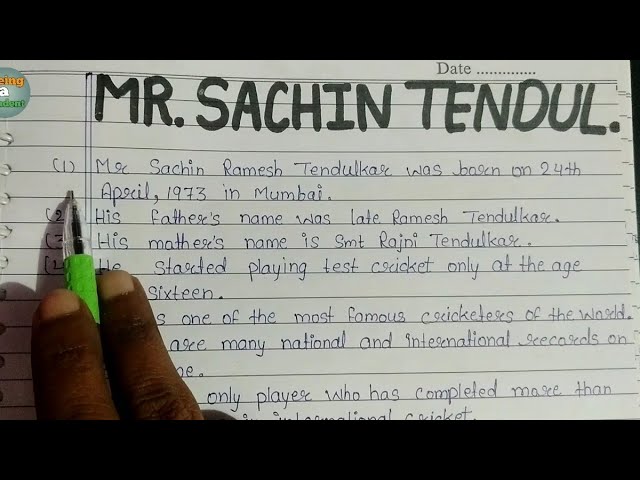 eing
a
udent
Date ..............
MR. SACHIN TENDUL.
(1) Mr Sachin Ramesh Tendulkar was born on 24th
April, 1973 in Mumbai.
His father's name was late Ramesh Tendulkar.
His mather's name is Smt Rajni Tendulkar.
He started playing test cricket only at the age
sixteen.
s one of the most famous cricketers of the World.
are many national and international records on
me.
only player who has completed more than
in international cricket.